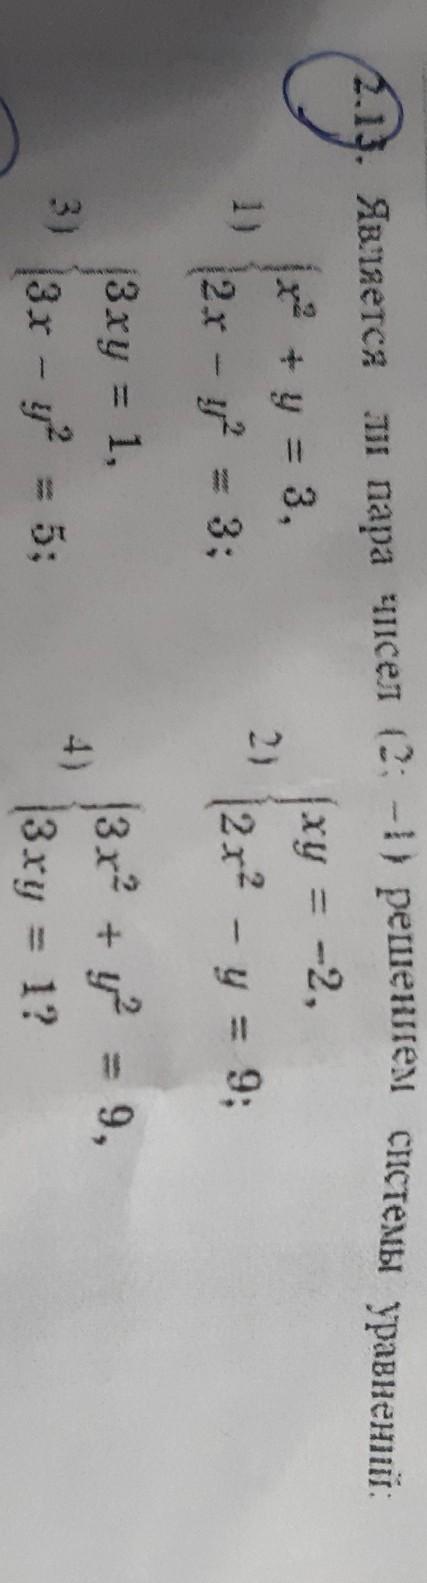 2.13. Является ли пара чисел (2; −1) решением системы уравнений:
1) { x² + y = 3, 2) { xy = −2,
2x − y² = 3; 2x² − y = 9;
3) { 3xy = 1, 4) { 3x² + y² = 9,
3x − y² = 5; 3xy = 1?